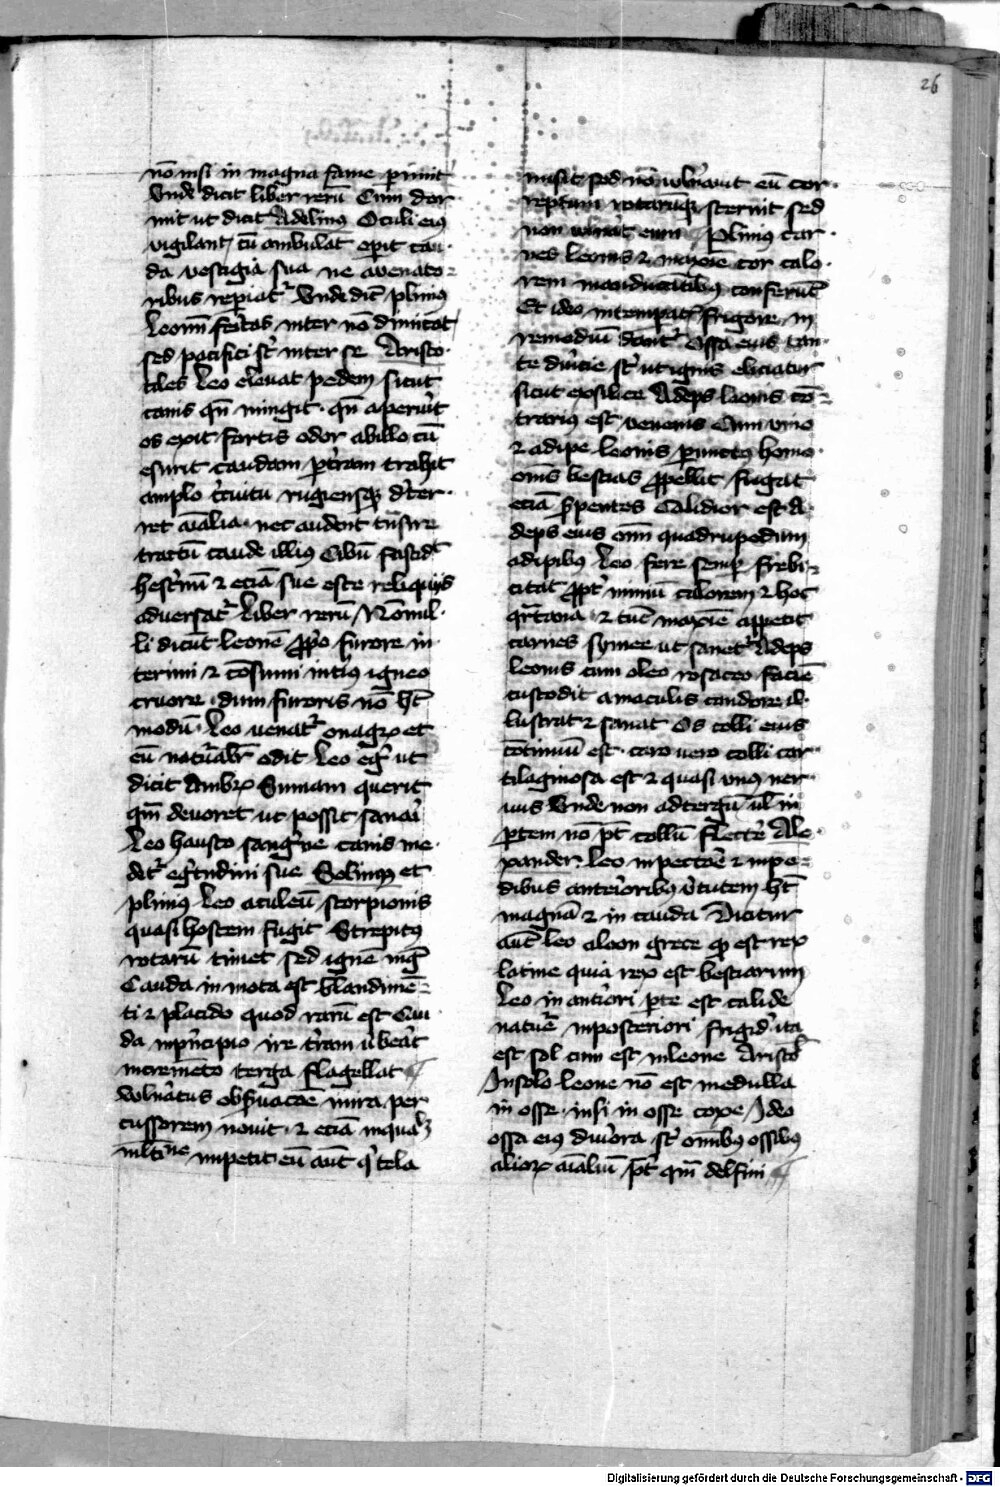 26
nō nisi in magna fame primit
Vnde dicit liber rerū Cum dor
mit ut dicit Adelinus Oculi eius
vigilant cū ambulat operit cau
da vestigia sua ne a venato
ribus repiatr Vnde dict plinius
Leonū feritas inter nō dimicat
sed pacifici st inter se Aristo
tiles Leo eleuat pedem sicut
canis qn mingit qn aperuit
os exit fortis odor ab illo cū
esurit caudam p terram trahit
amplo circuitu rugiensqz deter
ret aīalia nec audent tnsire
tractū caude illius Cibū fastidit
hesternū et eciā sue esce reliquijs
aduersatr Liber rerū Nōnul
li dicūt leonē prio furore in
terimi et cōsumi intius igneo
cruore dum furoris nō ht
modū Leo venatr onagrū et
eū naturalr odit Leo egr ut
dicit Ambro Simiam querit
qm deuoret ut possit sanari
Leo hausto sangwine canis me
detr egritudini sue Solinus et
plinius Leo aculeū scorpionis
quasi hostem fugit Strepitus
rotarū timet sed ignē mgis
Cauda in mota est blandimē
ti et placido quod rarū est Cau
da in principio ire terram uberat
incremēto terga flagellat
volneratus obseruacōe mira per
cussorem nouit et eciā in quali
multitudine impetit eū aut qi tela
misit sed nō wlnerauit eū cor
reptum rotatuqz sternit sed
non wlnerat eum Plinius Car
nes leonis et maxime cor calo
rem manducātibus conferunt
Et ideo intemperati frigore in
remediū dantr Ossa eius tan
te duricie st ut ignis eliciatur
sicut ex silice Adeps leonis cō
trarius est venenis Cum vino
et adipe leonis perunctus homo
omīs bestias propellit fugat
eciā serpentes Calidior est A
deps eius omī quadrupedum
adipibus Leo fere semper febri
citat propter nimiū calorem et hoc
qrtana et tūc maxīe appetit
carnes symee ut sanetr Adeps
leonis cum oleo rosaceo faciē
custodit a maculis candore il
lustrat et sanat Os colli eius
cōtinuū est caro vero colli car
tilaginosa est et quasi vnus ner
uus Vnde non ad tergū ul in
partem nō pt collū flectere Ale
xander Leo in pectore et in pe
dibus anterioribus virtutem ht
magnā et in cauda Dicitur
aut leo a leon grece qd est rex
latine quia rex est bestiarum
Leo in anteriori parte est calide
nature in posteriori frigide ita
est sol cum est in leone Aristo
In solo leone nō est medulla
in osse nisi in osse coxe Ideo
ossa eius duriora st omībus ossibus
aliorum aīaliū pt qm delfini
Digitalisierung gefördert durch die Deutsche Forschungsgemeinschaft - DFG